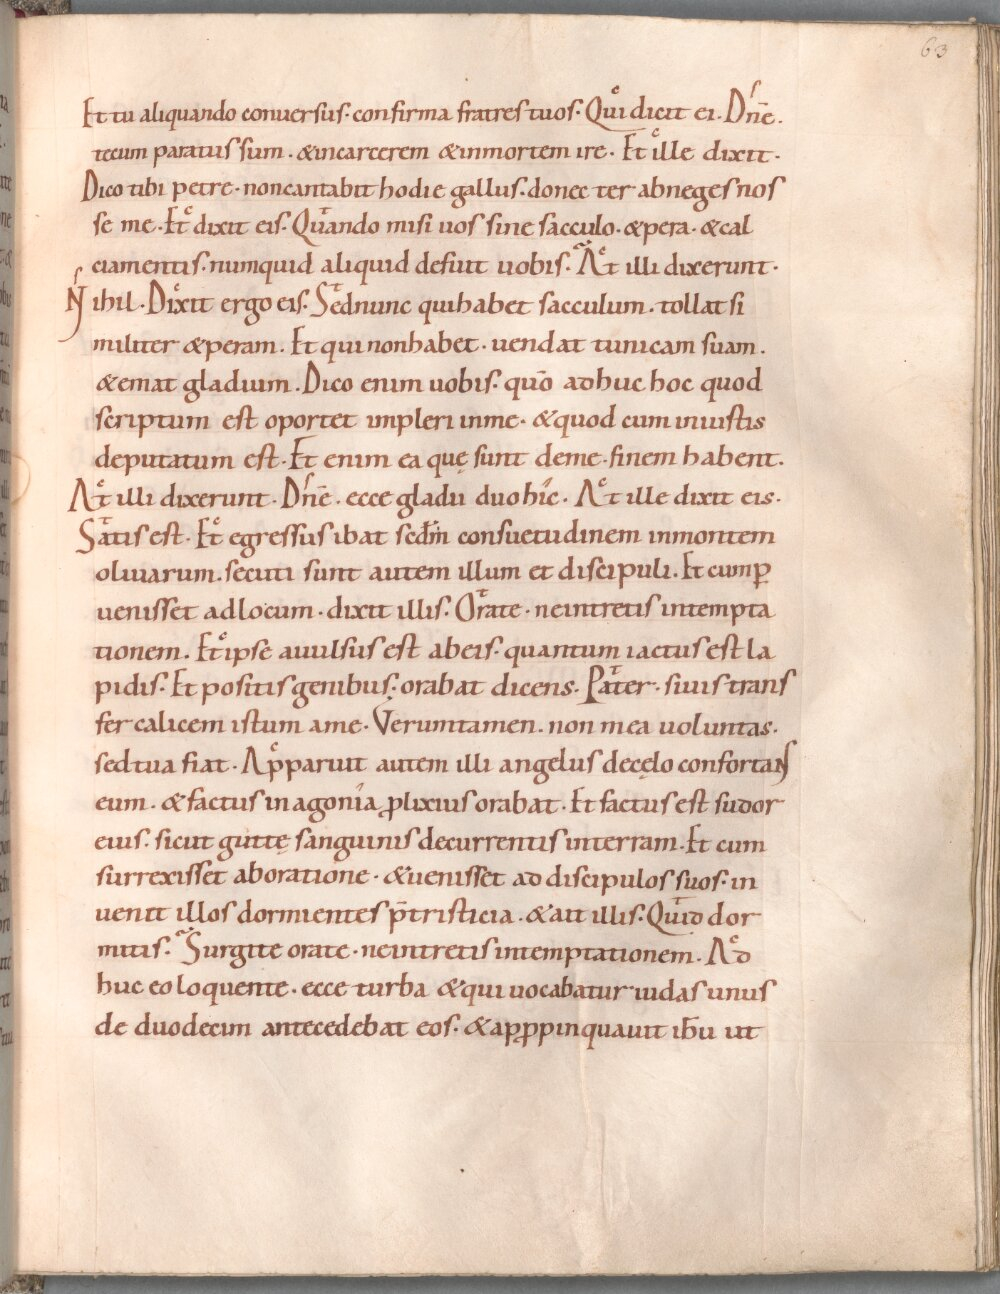 63
Et tu aliquando conuersus· confirma fratres tuos· Qui dicit ei· Dn̄e·
tecum paratus sum· & incarcerem & inmortem ire· Et ille dixit·
Dico tibi petre· non cantabit hodie gallus· donec ter abneges nos
se me· Et dixit eis· Quando misi uos sine sacculo· & pera· & cal
ciamentis· numquid aliquid defuit uobis· At illi dixerunt·
Nihil· Dixit ergo eis· Sed nunc qui habet sacculum· tollat si
militer & peram· Et qui non habet· uendat tunicam suam·
& emat gladium· Dico enim uobis· quō adhuc hoc quod
scriptum est oportet impleri inme· & quod cum iniustis
deputatum est· Et enim ea quę sunt deme· finem habent·
At illi dixerunt· Dn̄e· ecce gladii duo hic· At ille dixit eis·
Satis est· Et egressus ibat sed̄m consuetudinem inmontem
oliuarum· secuti sunt autem illum et discipuli· Et cum ꝑ
uenisset adlocum· dixit illis· Orate· ne intretis intempta
tionem· Et ipse auulsus est abeis· quantum iactus est la
pidis· Et positis genibus· orabat dicens· Pater· si uis trans
fer calicem istum ame· Veruntamen· non mea uoluntas·
sed tua fiat· Apparuit autem illi angelus decęlo confortans
eum· & factus in agonia ꝓlixius orabat· Et factus est sudor
eius· sicut guttę sanguinis decurrentis interram· Et cum
surrexisset aboratione· & uenisset ad discipulos suos· in
uenit illos dormientes p̄ tristicia· & ait illis· Quid dor
mitis· Surgite orate· ne intretis intemptationem· Ad
huc eo loquente· ecce turba & qui uocabatur iudas unus
de duodecim antecedebat eos· & apꝓpinquauit ih̄u ut